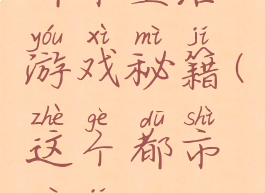 yóu xì mì jí
游戏秘籍(
zhè gè dū shì
这个都市